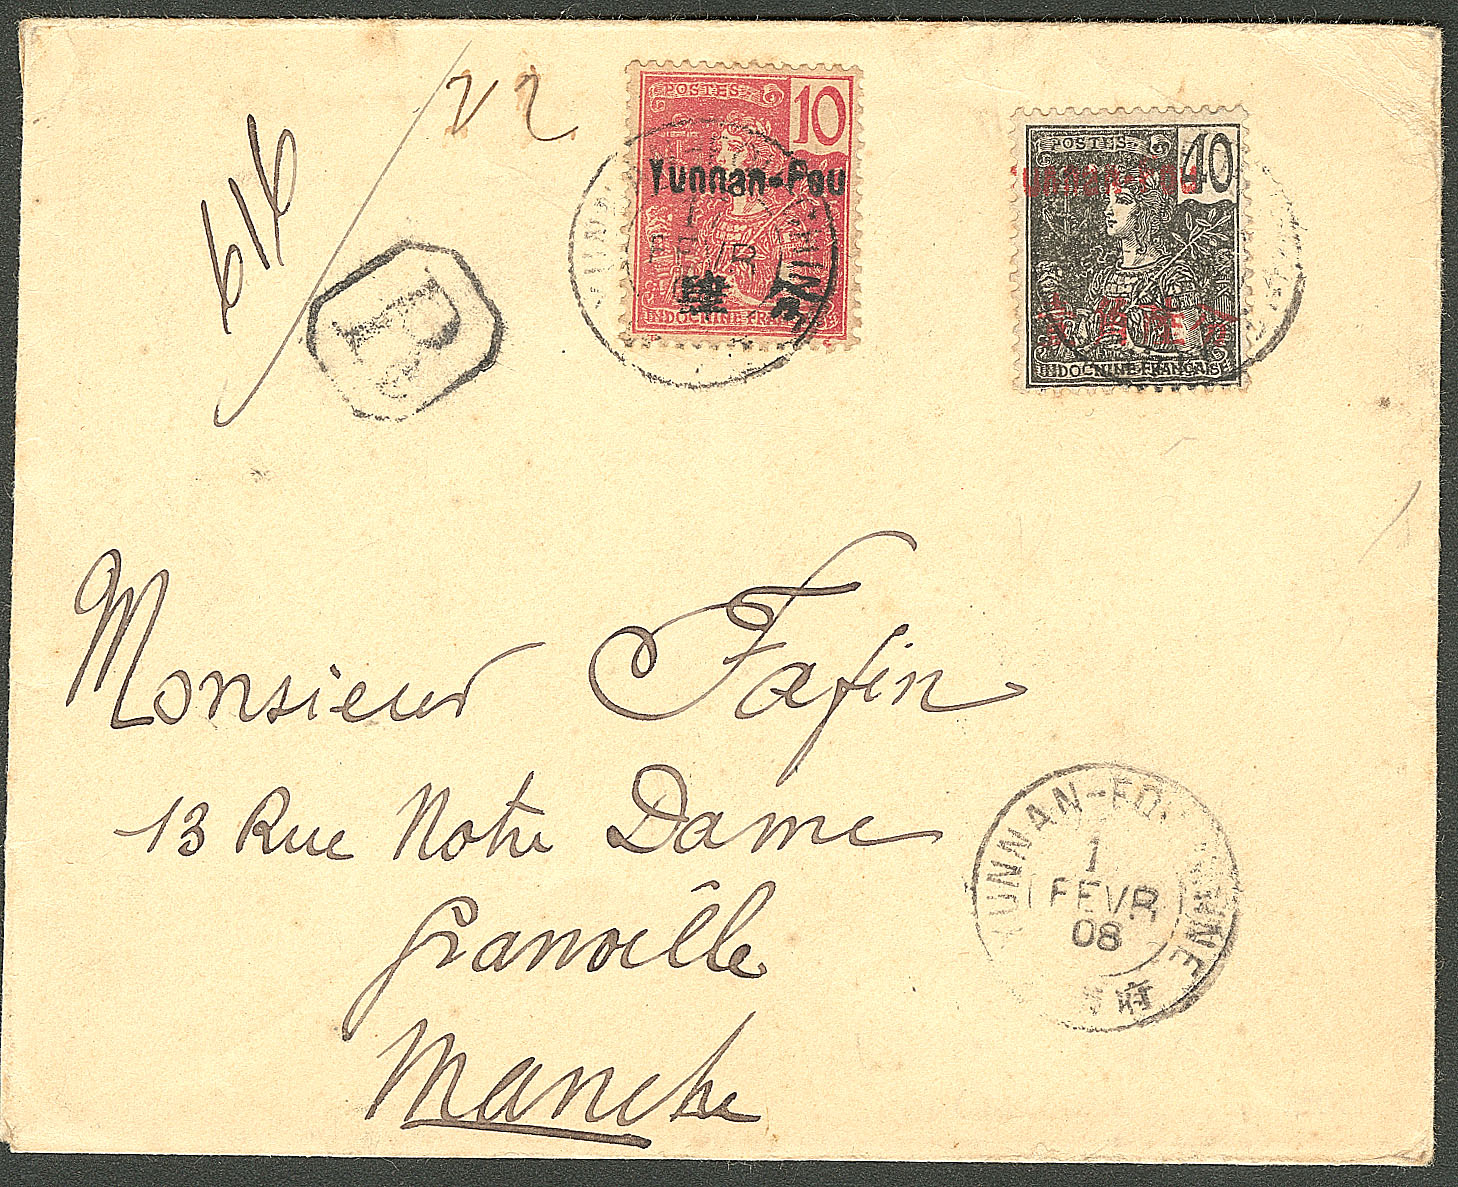 616
22
R
POSTES
10
Yunnan-Fou
INDOCHINE FRANÇAISE
POSTES
40
INDOCHINE FRANÇAISE
Monsieur Fafin
13 Rue Notre Dame
Granville
Manche
YUNNAN-FOU
CHINE
1
FEVR
08
府